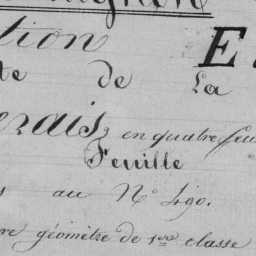 tion E
de La
erais, en quatre feu
Feuille
au N° 490.
re géomètre de 1ère classe